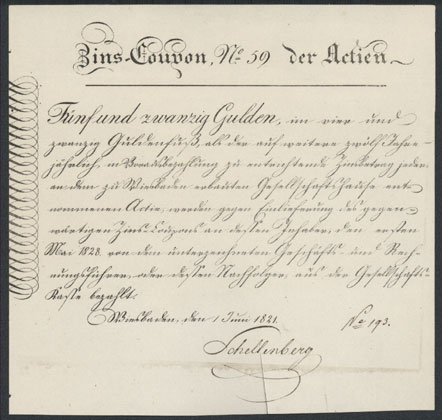 Zins-Coupon, No. 59 der Actien
Fünf und zwanzig Gulden, im vier und
zwanzig Guldenfuß, als der auf weitere zwölf Jahre
jährlich, in Vorausbezahlung zu entrichtende Zinsbetrag jeder
an dem zu Wiesbaden erbauten Gesellschaftshause ent-
nommenen Actie, werden gegen Einlieferung des gegen-
wärtigen Zins-Coupons an dessen Inhaber, den ersten
Mai 1828, von dem unterzeichneten Geschäfts- und Rech-
nungsführer, oder dessen Nachfolger, aus der Gesellschafts-
Kasse bezahlt.
Wiesbaden, den 1 Juni 1821. No. 193.
Schellenberg